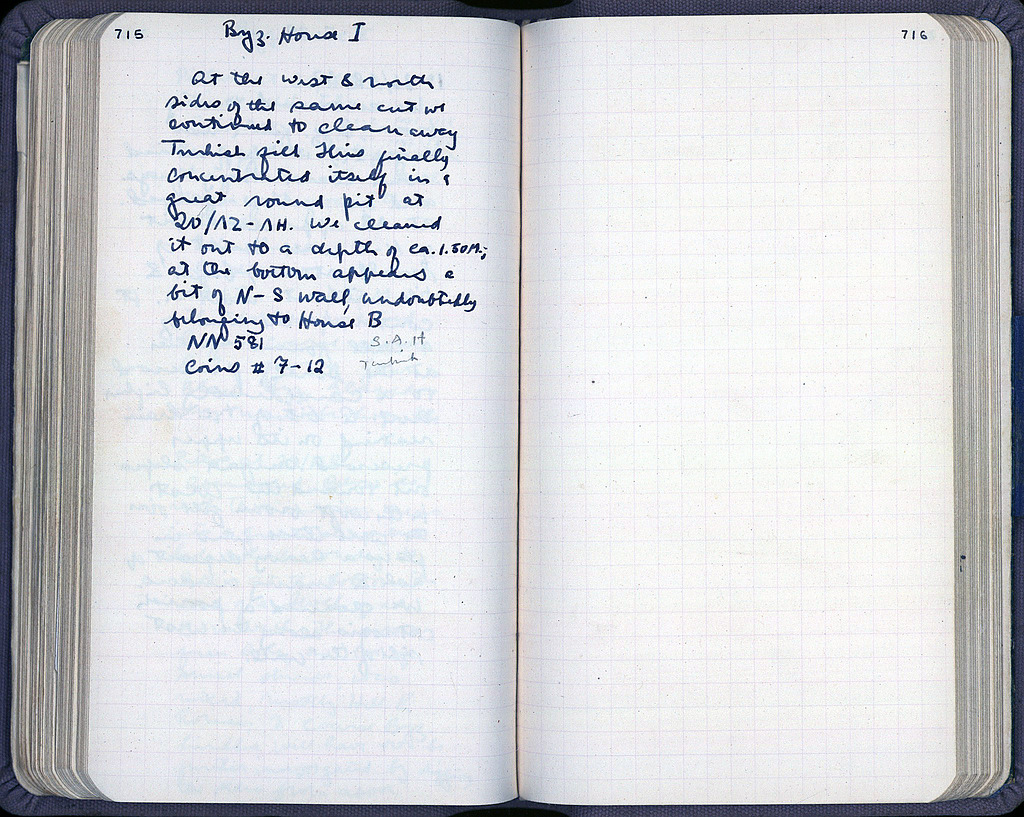 715
Byz. House I
At the west & north
sides of the same cut we
continued to clean away
Turkish fill. This finally
concentrated itself in a
great round pit at
20/12-ΛΗ. We cleaned
it out to a depth of ca. 1.50M.;
at the bottom appears a
bit of N-S wall, undoubtedly
belonging to House B
NN 581
S.A.H
Coins # 7-12
Turkish
716